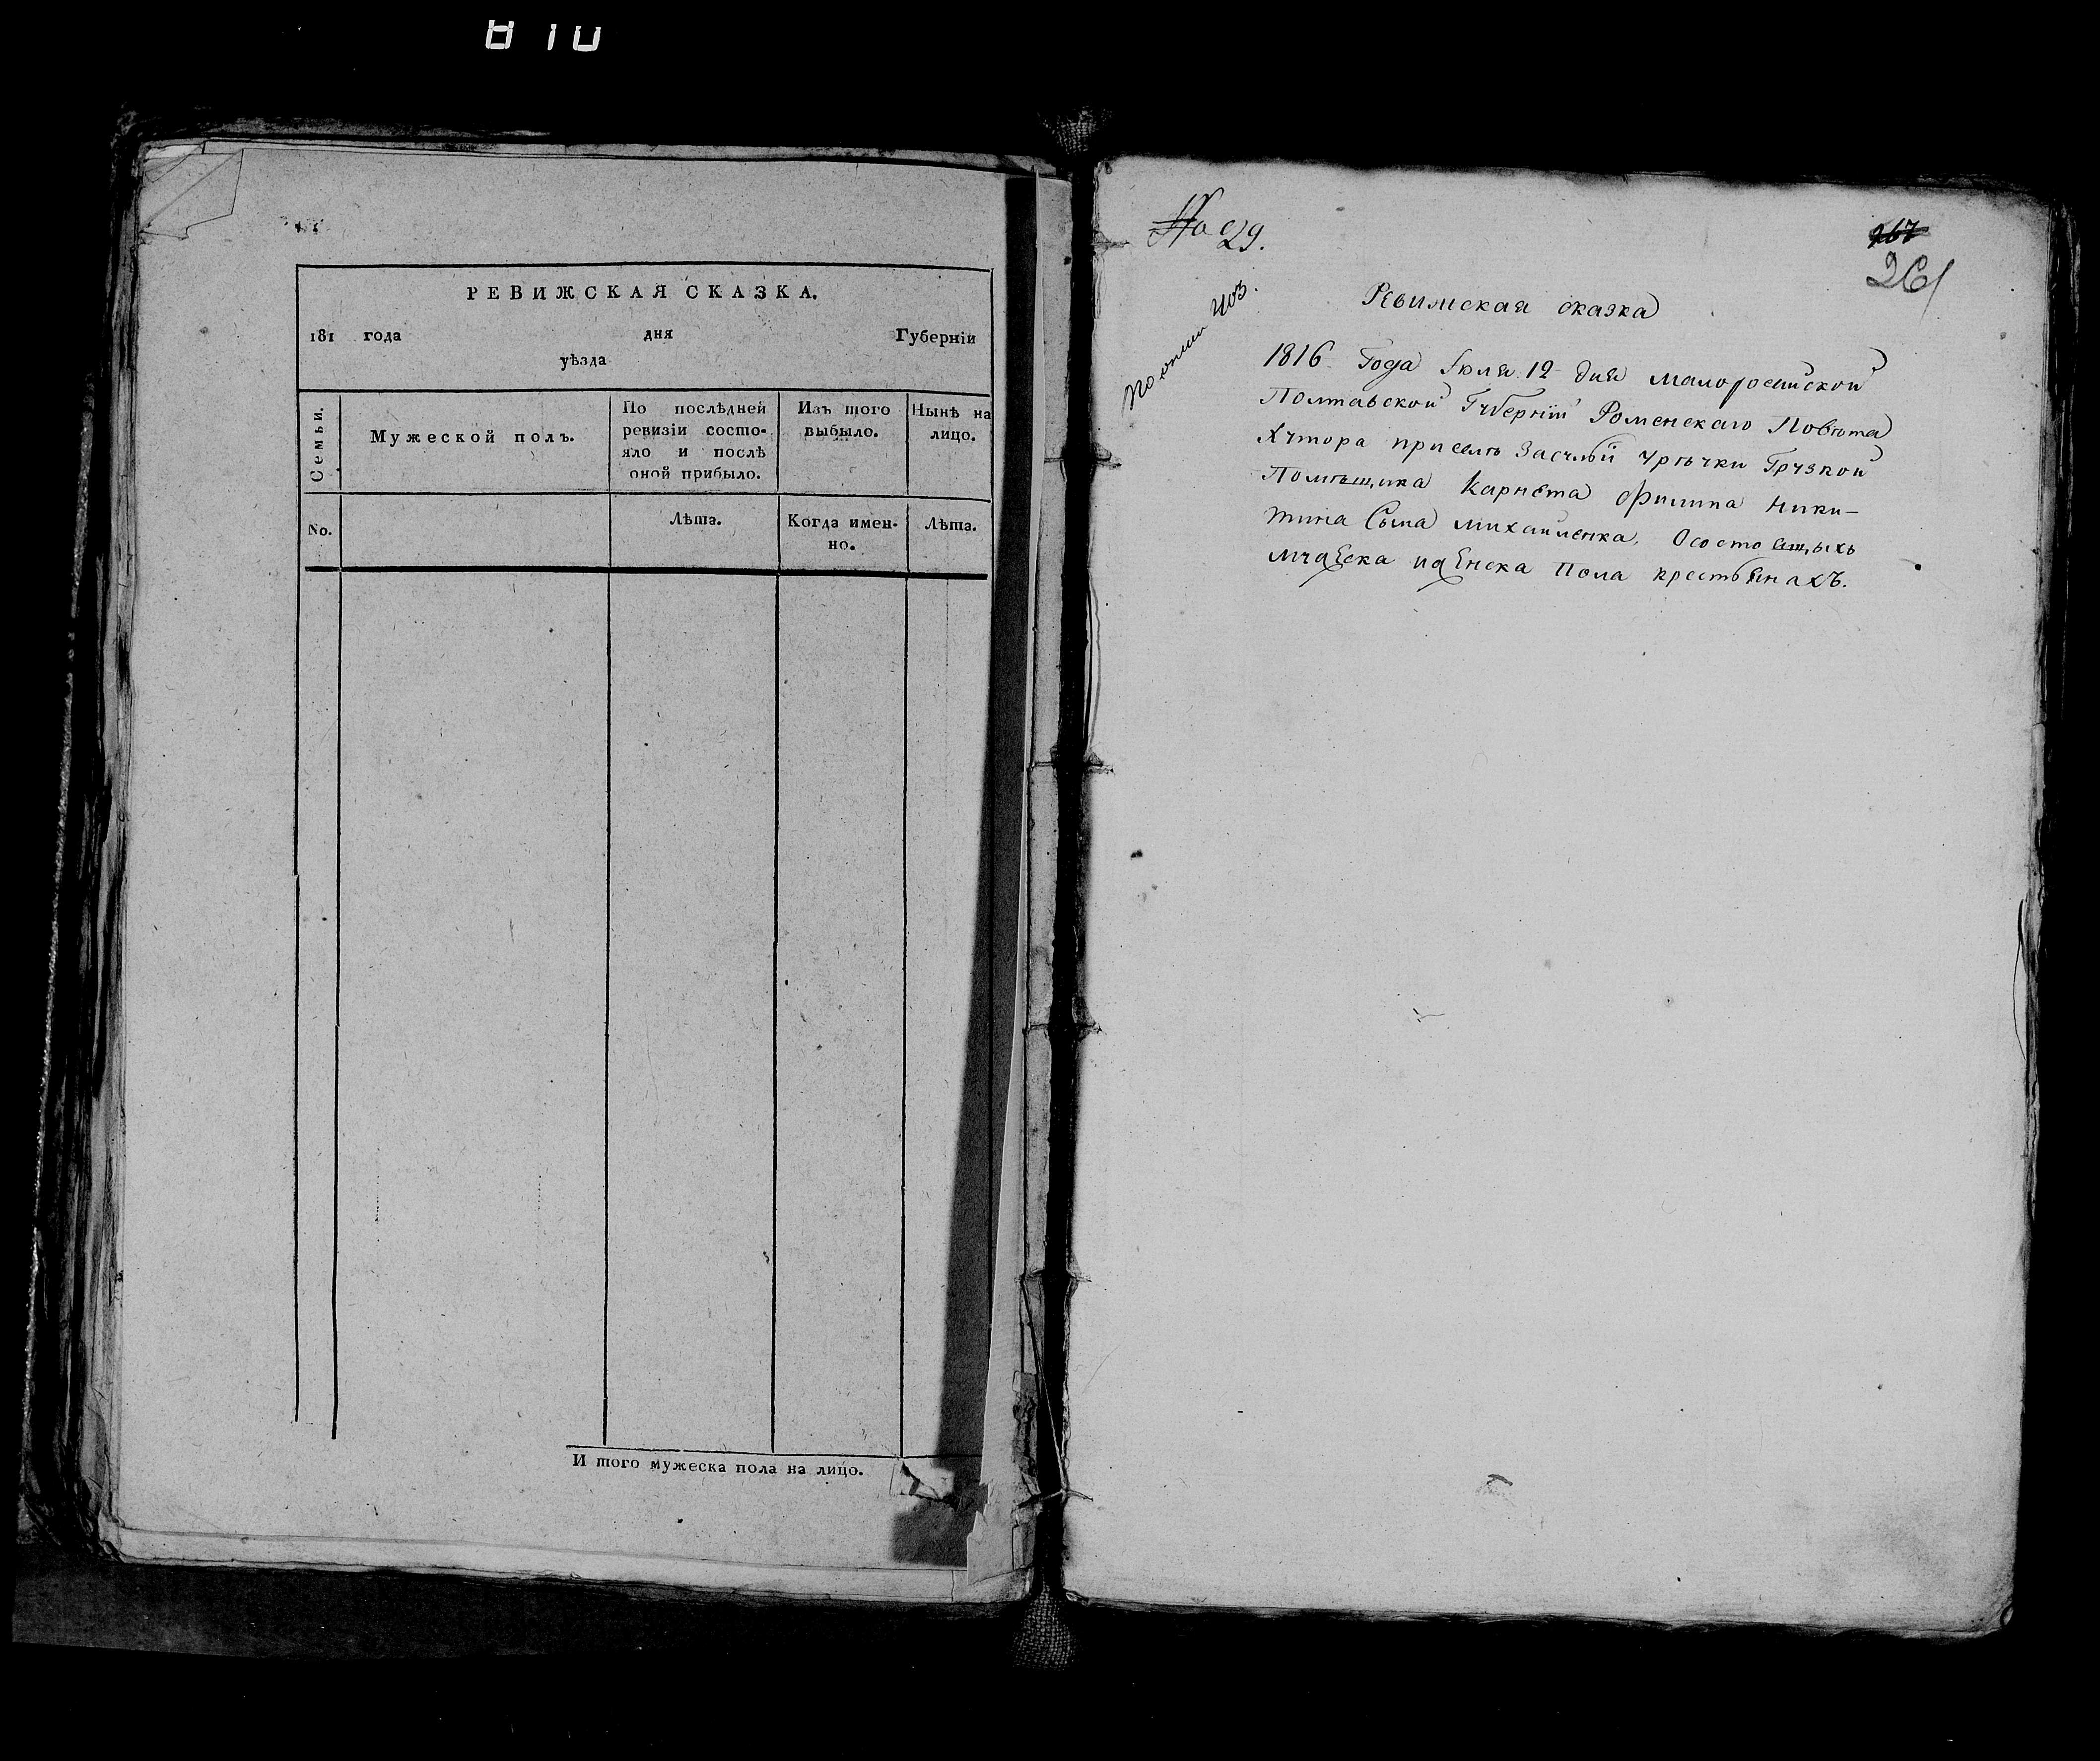 810
РЕВИЖСКАЯ СКАЗКА.
181 года дня Губерніи
уѣзда
Семьи.
Мужеской полъ.
По послѣдней
ревизіи состо-
яло и послѣ
оной прибыло.
Изъ того
выбыло.
Нынѣ на
лицо.
No.
Лѣта.
Когда имен-
но.
Лѣта.
И того мужеска пола на лицо.
No 29.
267
261
По описи 403.
Ревижская сказка
1816 Года Июля 12 дня малоросийской
Полтавской Губерніи Роменскаго Повѣта
Хутора приселѣ Засульи урѣчки Грузкой
Помѣщика Карнета Филипа Ники-
тина Сына михайленка, Осостоящыхъ
мужеска иженска пола крестьянахъ.